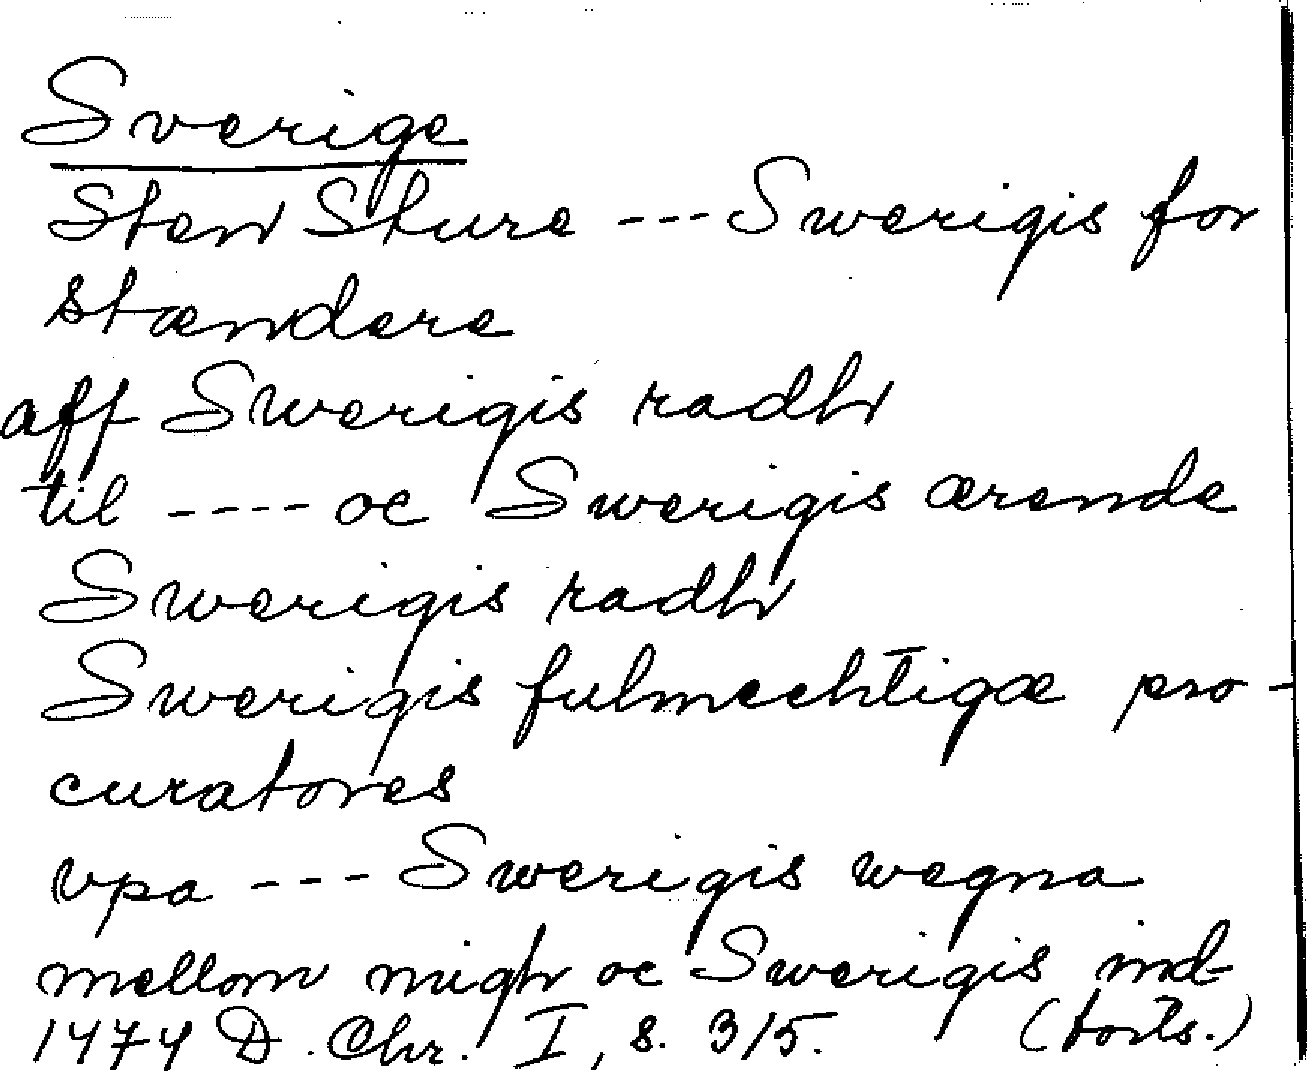 Sverige
Sten Sture --- Swerigis for
stændere
aff Swerigis radh
til ---- oc Swerigis ærende
Swerigis radh
Swerigis fulmechtigæ pro-
curatores
vpa --- Swerigis wegna
mellom migh oc Swerigis ind-
1474 D. Chr. I, s. 315. (forts.)